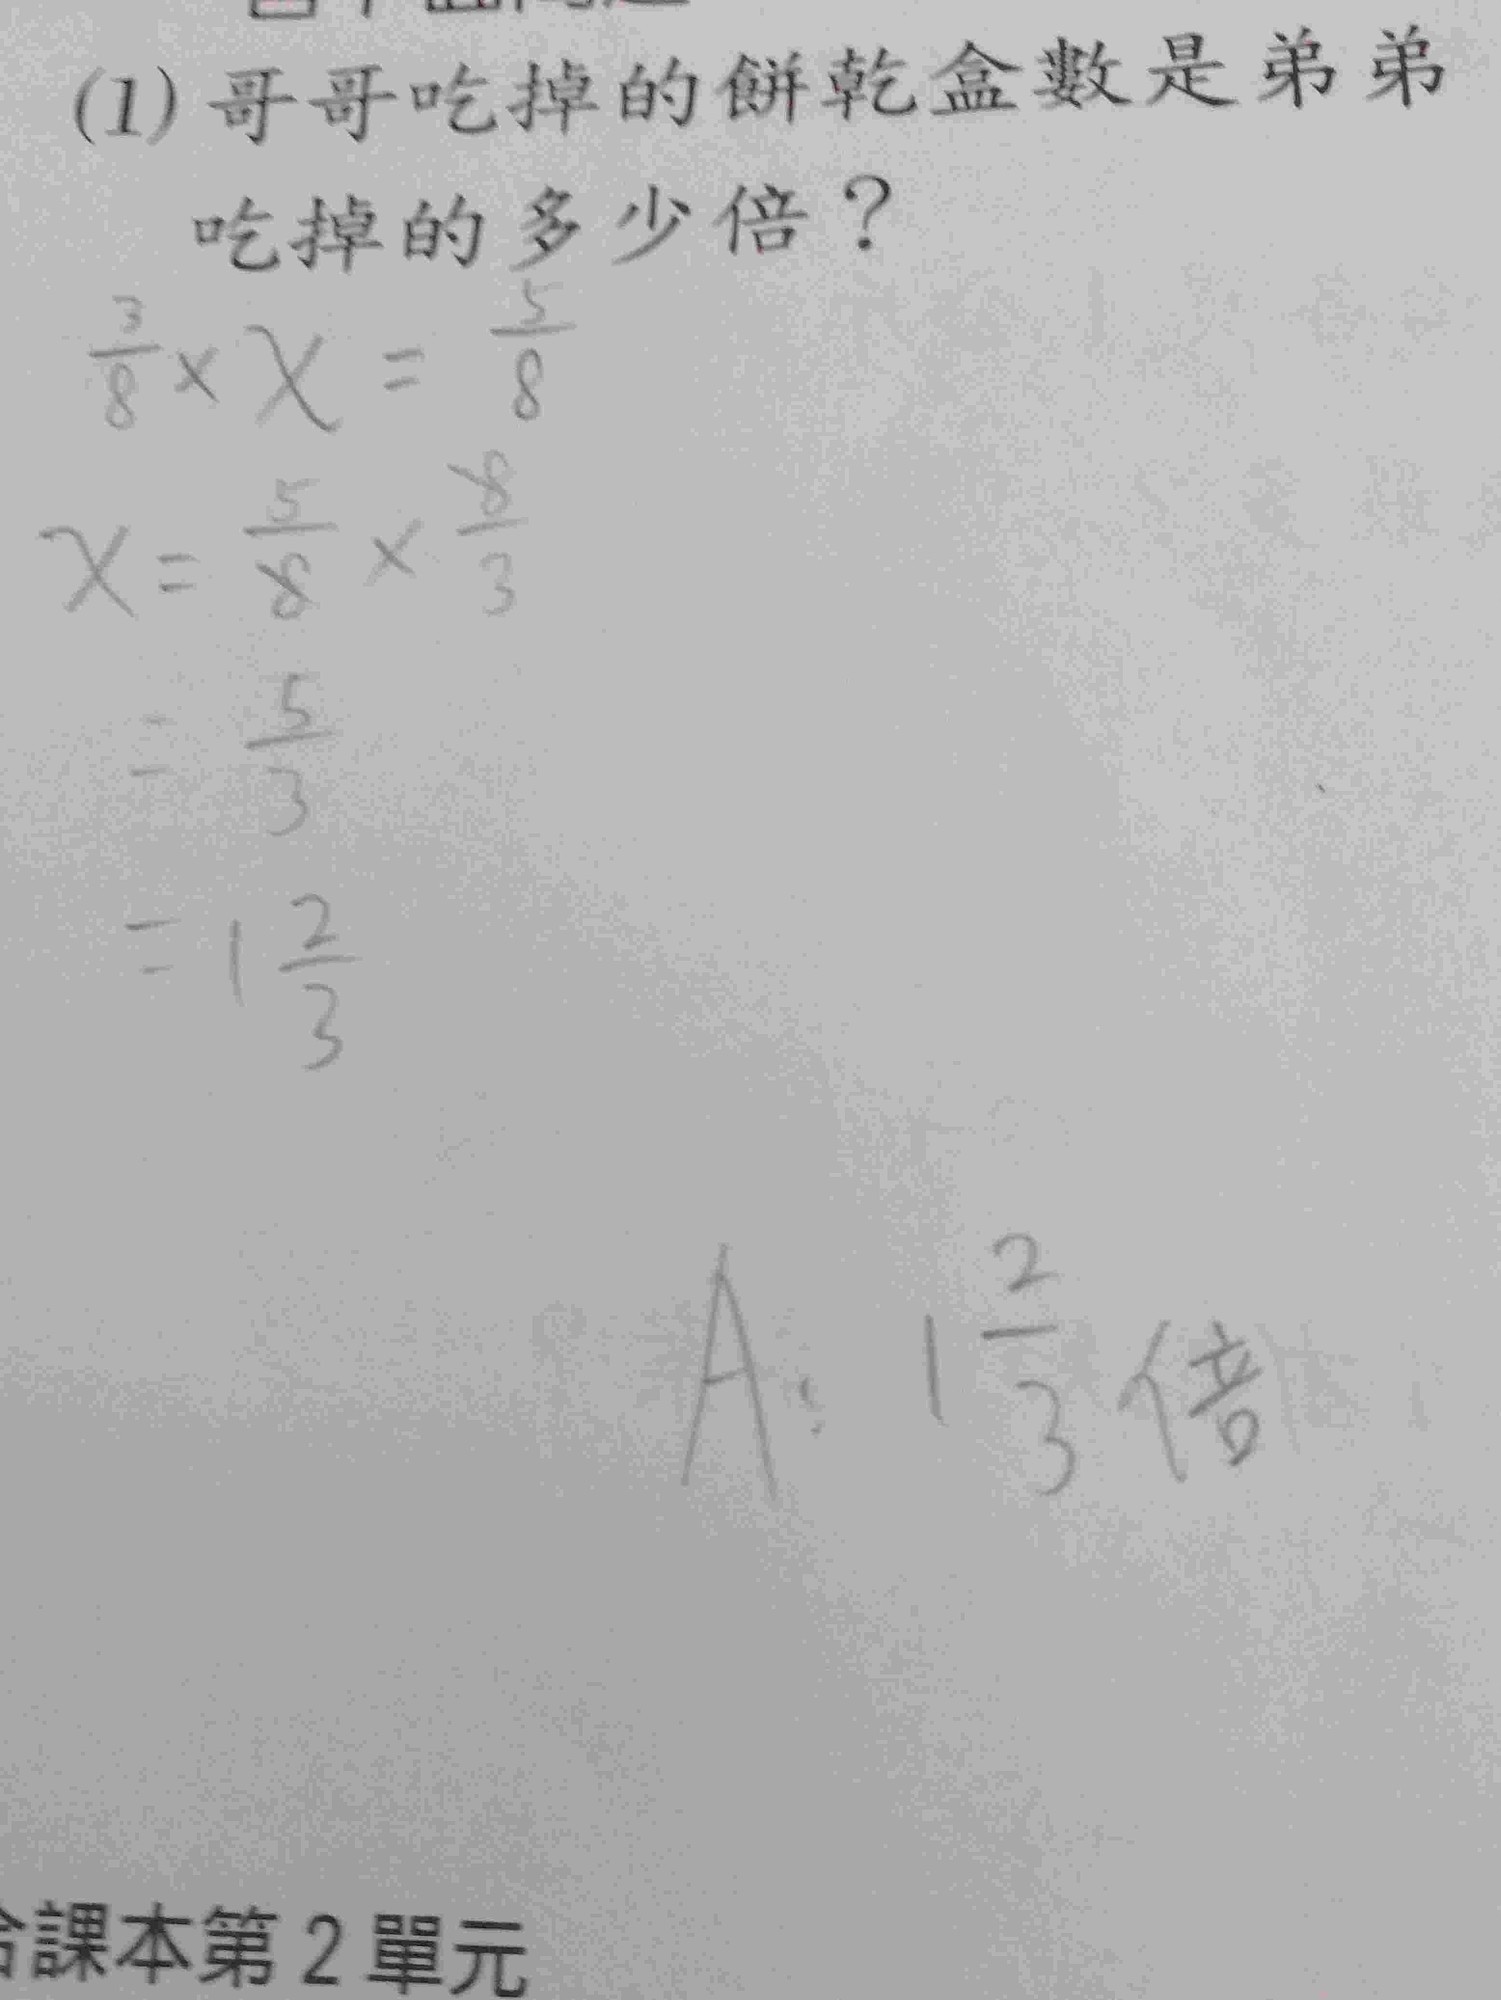 (1) 哥哥吃掉的餅乾盒數是弟弟
吃掉的多少倍？
3/8 × x = 5/8
x = 5/8 × 8/3
= 5/3
= 1 2/3
A: 1 2/3 倍
課本第 2 單元